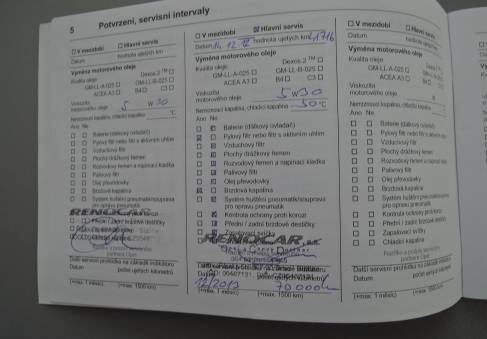 5 Potvrzení, servisní intervaly
☐ V mezidobí ☐ Hlavní servis
Datum hodnota ujetých km
Výměna motorového oleje
Kvalita oleje Dexos 2 ™ ☐
GM-LL-A-025 ☐ GM-LL-B-025 ☐
ACEA A3 ☐ B4 ☐ C3 ☐
Viskozita
motorového oleje 5 W 30
Nemrznoucí kapalina, chladicí kapalina °C
Ano Ne
☐ ☐ Baterie (dálkový ovladač)
☐ ☐ Pylový filtr nebo filtr s aktivním uhlím
☐ ☐ Vzduchový filtr
☐ ☐ Plochý drážkový řemen
☐ ☐ Rozvodový řemen a napínací kladka
☐ ☐ Palivový filtr
☐ ☐ Olej převodovky
☐ ☐ Brzdová kapalina
☐ ☐ Systém huštění pneumatik/souprava
pro opravu pneumatik
RENOCAR
Další servisní prohlídka na základě indikátoru
Datum počet ujetých kilometrů
(+max. 1 měsíc) (+max. 1500 km)
☐ V mezidobí ☑ Hlavní servis
Datum 14. 12. 12 hodnota ujetých km 41716
Výměna motorového oleje
Kvalita oleje Dexos 2 ™ ☐
GM-LL-A-025 ☐ GM-LL-B-025 ☐
ACEA A3 ☐ B4 ☐ C3 ☐
Viskozita
motorového oleje 5 W 30
Nemrznoucí kapalina, chladicí kapalina -30 °C
Ano Ne
Baterie (dálkový ovladač)
Pylový filtr nebo filtr s aktivním uhlím
Vzduchový filtr
Plochý drážkový řemen
Rozvodový řemen a napínací kladka
Palivový filtr
Olej převodovky
Brzdová kapalina
Systém huštění pneumatik/souprava
pro opravu pneumatik
Kontrola ochrany proti korozi
Přední / zadní brzdové destičky
Zapalovací svíčky
RENOCAR
Datum
12/2013 70 000
(+max. 1 měsíc) (+max. 1500 km)
☐ V mezidobí ☐ Hlavní servis
Datum hodnota ujetých km
Výměna motorového oleje
Kvalita oleje Dexos 2
GM-LL-A-025 ☐ GM-LL-B-025
ACEA A3 ☐ B4 ☐
Viskozita
motorového oleje W
Nemrznoucí kapalina, chladicí kapalina
Ano Ne
☐ ☐ Baterie (dálkový ovladač)
☐ ☐ Pylový filtr nebo filtr s aktivním uhlím
☐ ☐ Vzduchový filtr
☐ ☐ Plochý drážkový řemen
☐ ☐ Rozvodový řemen a napínací kladka
☐ ☐ Palivový filtr
☐ ☐ Olej převodovky
☐ ☐ Brzdová kapalina
☐ ☐ Systém huštění pneumatik/souprava
pro opravu pneumatik
☐ ☐ Kontrola ochrany proti korozi
☐ ☐ Přední / zadní brzdové destičky
☐ ☐ Zapalovací svíčky
☐ ☐ Chladicí kapalina
Razítko a podpis servisního
partnera Opel
Další servisní prohlídka na základě indikátoru
Datum počet ujetých kilometrů
(+max. 1 měsíc) (+max. 1500 km)